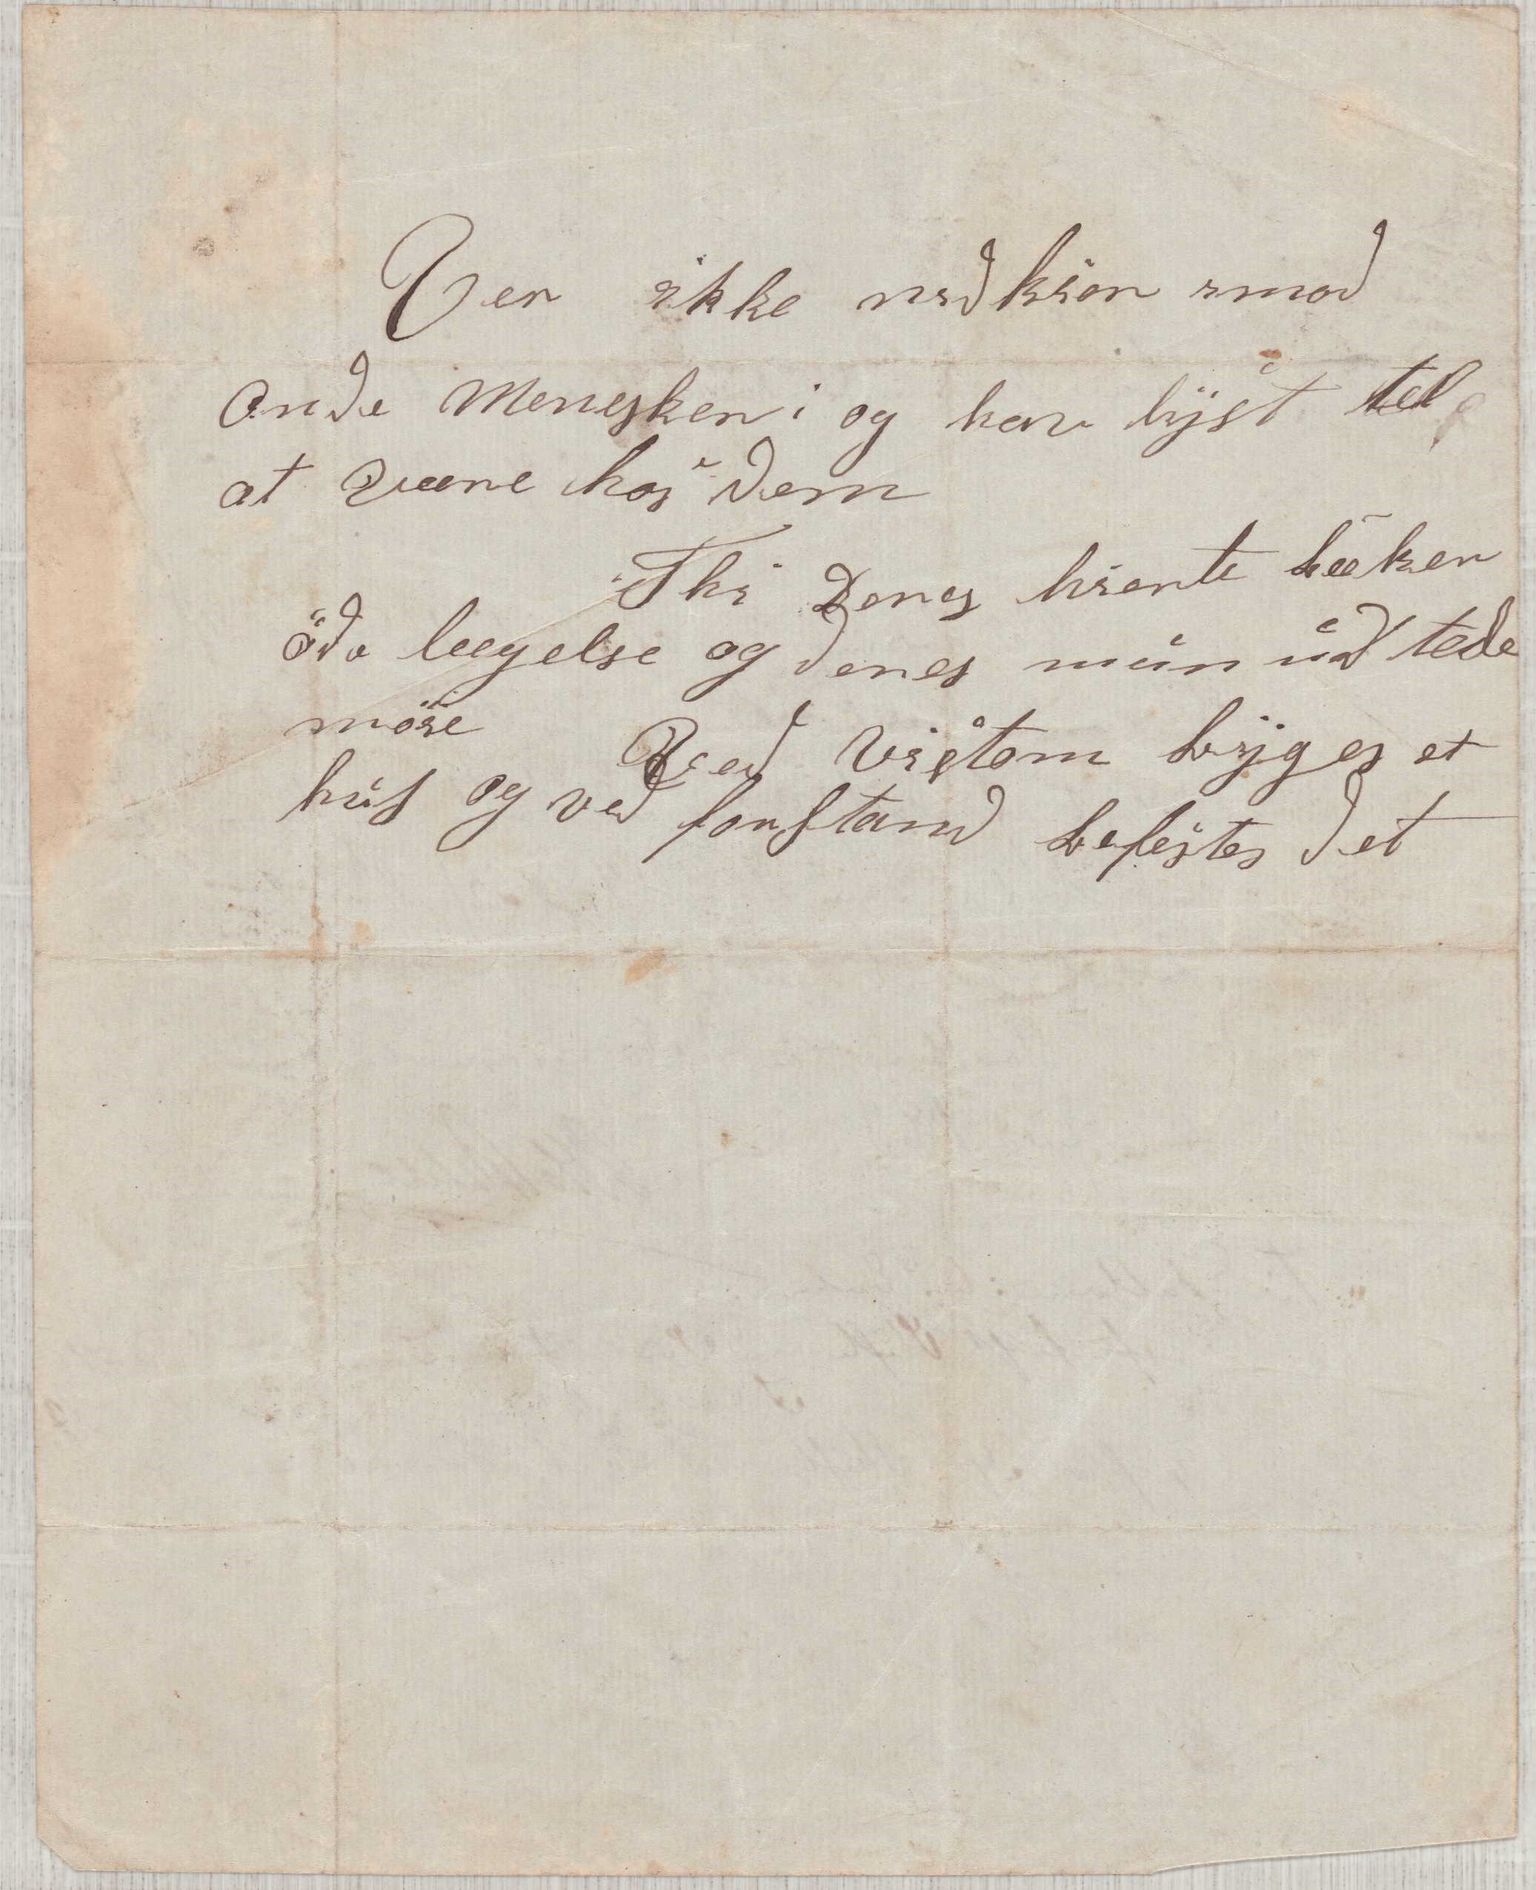 Ver ikke nidkier imod
onde Menesker i og hav lÿst tel
at være hos dem
Thi Deres hierte tæker
öde leegelse og deres mün üd tede
möie Ved vistom bÿges et
hüs og ved forstand befestes det